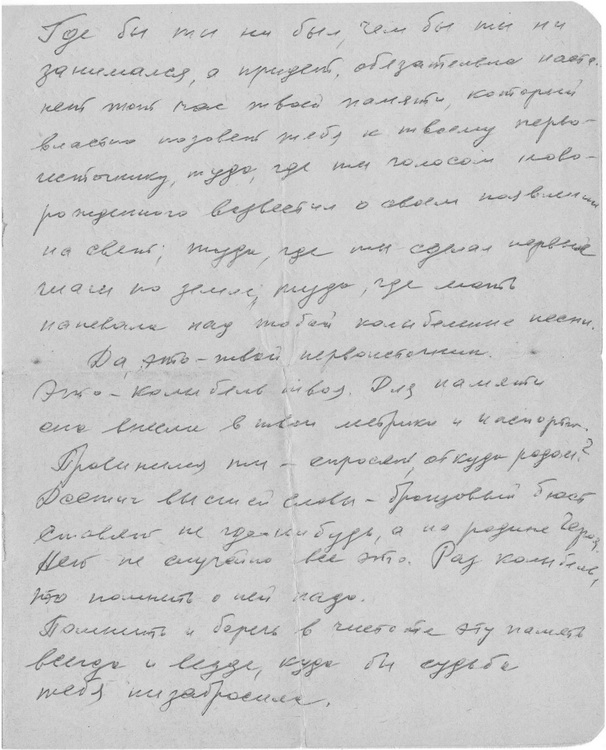 Где бы ты ни был, чем бы ты ни
занимался, а придет, обязательно наста-
нет тот час твоей памяти, который
властно позовет тебя к твоему перво-
источнику, туда, где ты голосом ново-
рожденного возвестил о своем появлении
на свет; туда, где ты сделал первые
шаги по земле; туда, где мать
напевала над тобой колыбельные песни.
Да, это - твой первоисточник.
Это - колыбель твоя. Для памяти
она внесли в твои метрики и паспорта.
Провинился ты - спросят, откуда родом?
Достиг высшей славы - бронзовый бюст
ставят не где-нибудь, а на родине Героя.
Нет не случайно все это. Раз колыбель,
то помнить о ней надо.
Помнить и беречь в чистоте эту память
всегда и везде, куда бы судьба
тебя ни забросила.